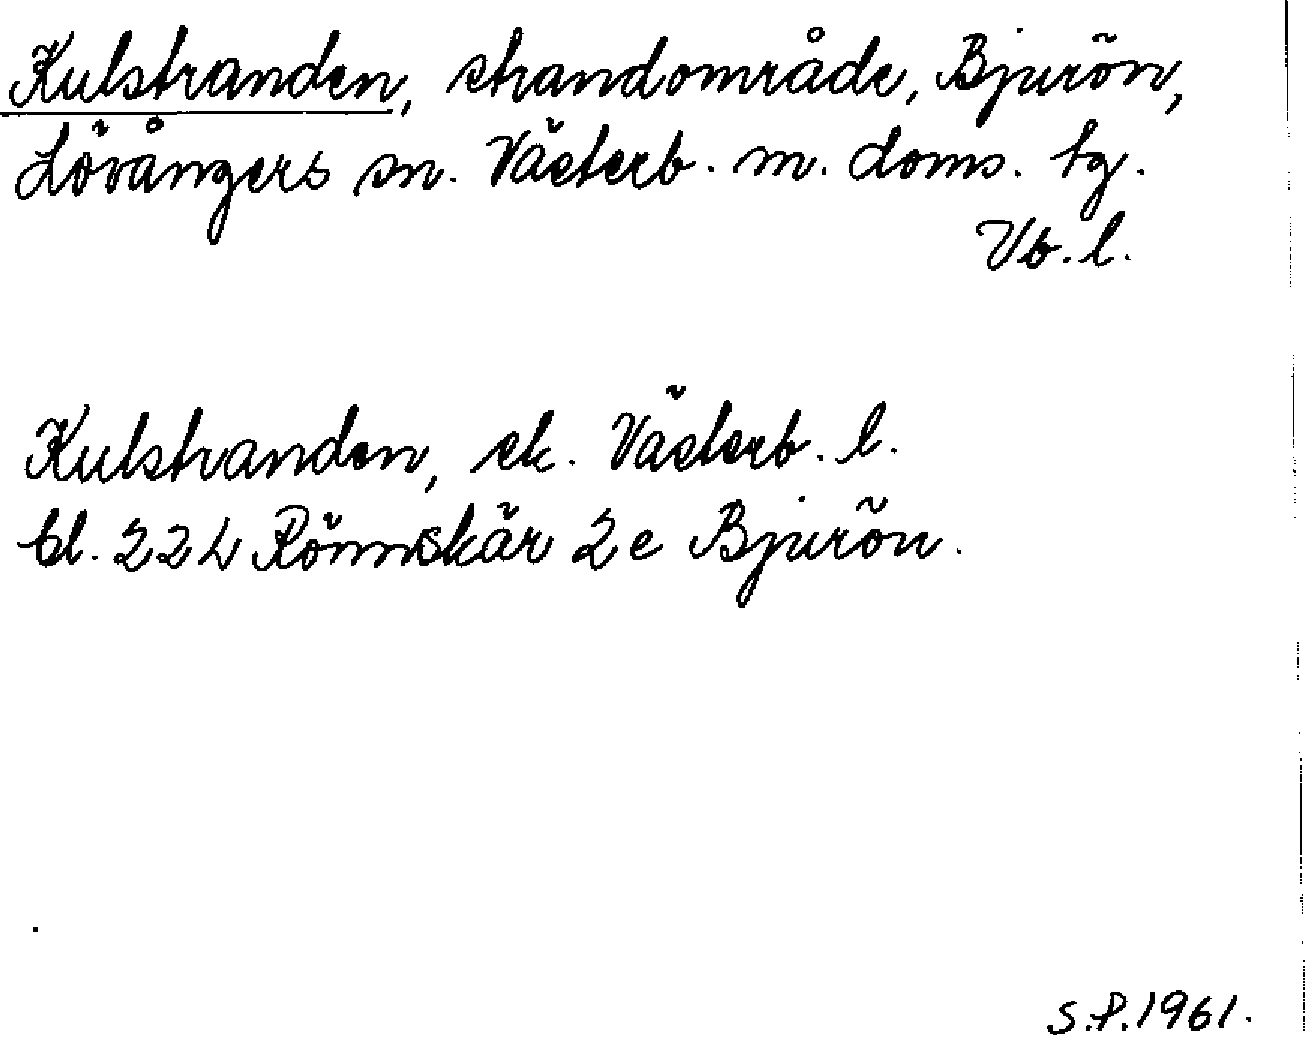 Kulstranden, strandområde, Bjurön,
Lövångers sn. Västerb. m. doms. tg.
Vb. l.
Kulstranden, ek. Västerb. l.
bl. 22 L Rönnskär 2 e Bjurön.
S.P. 1961.